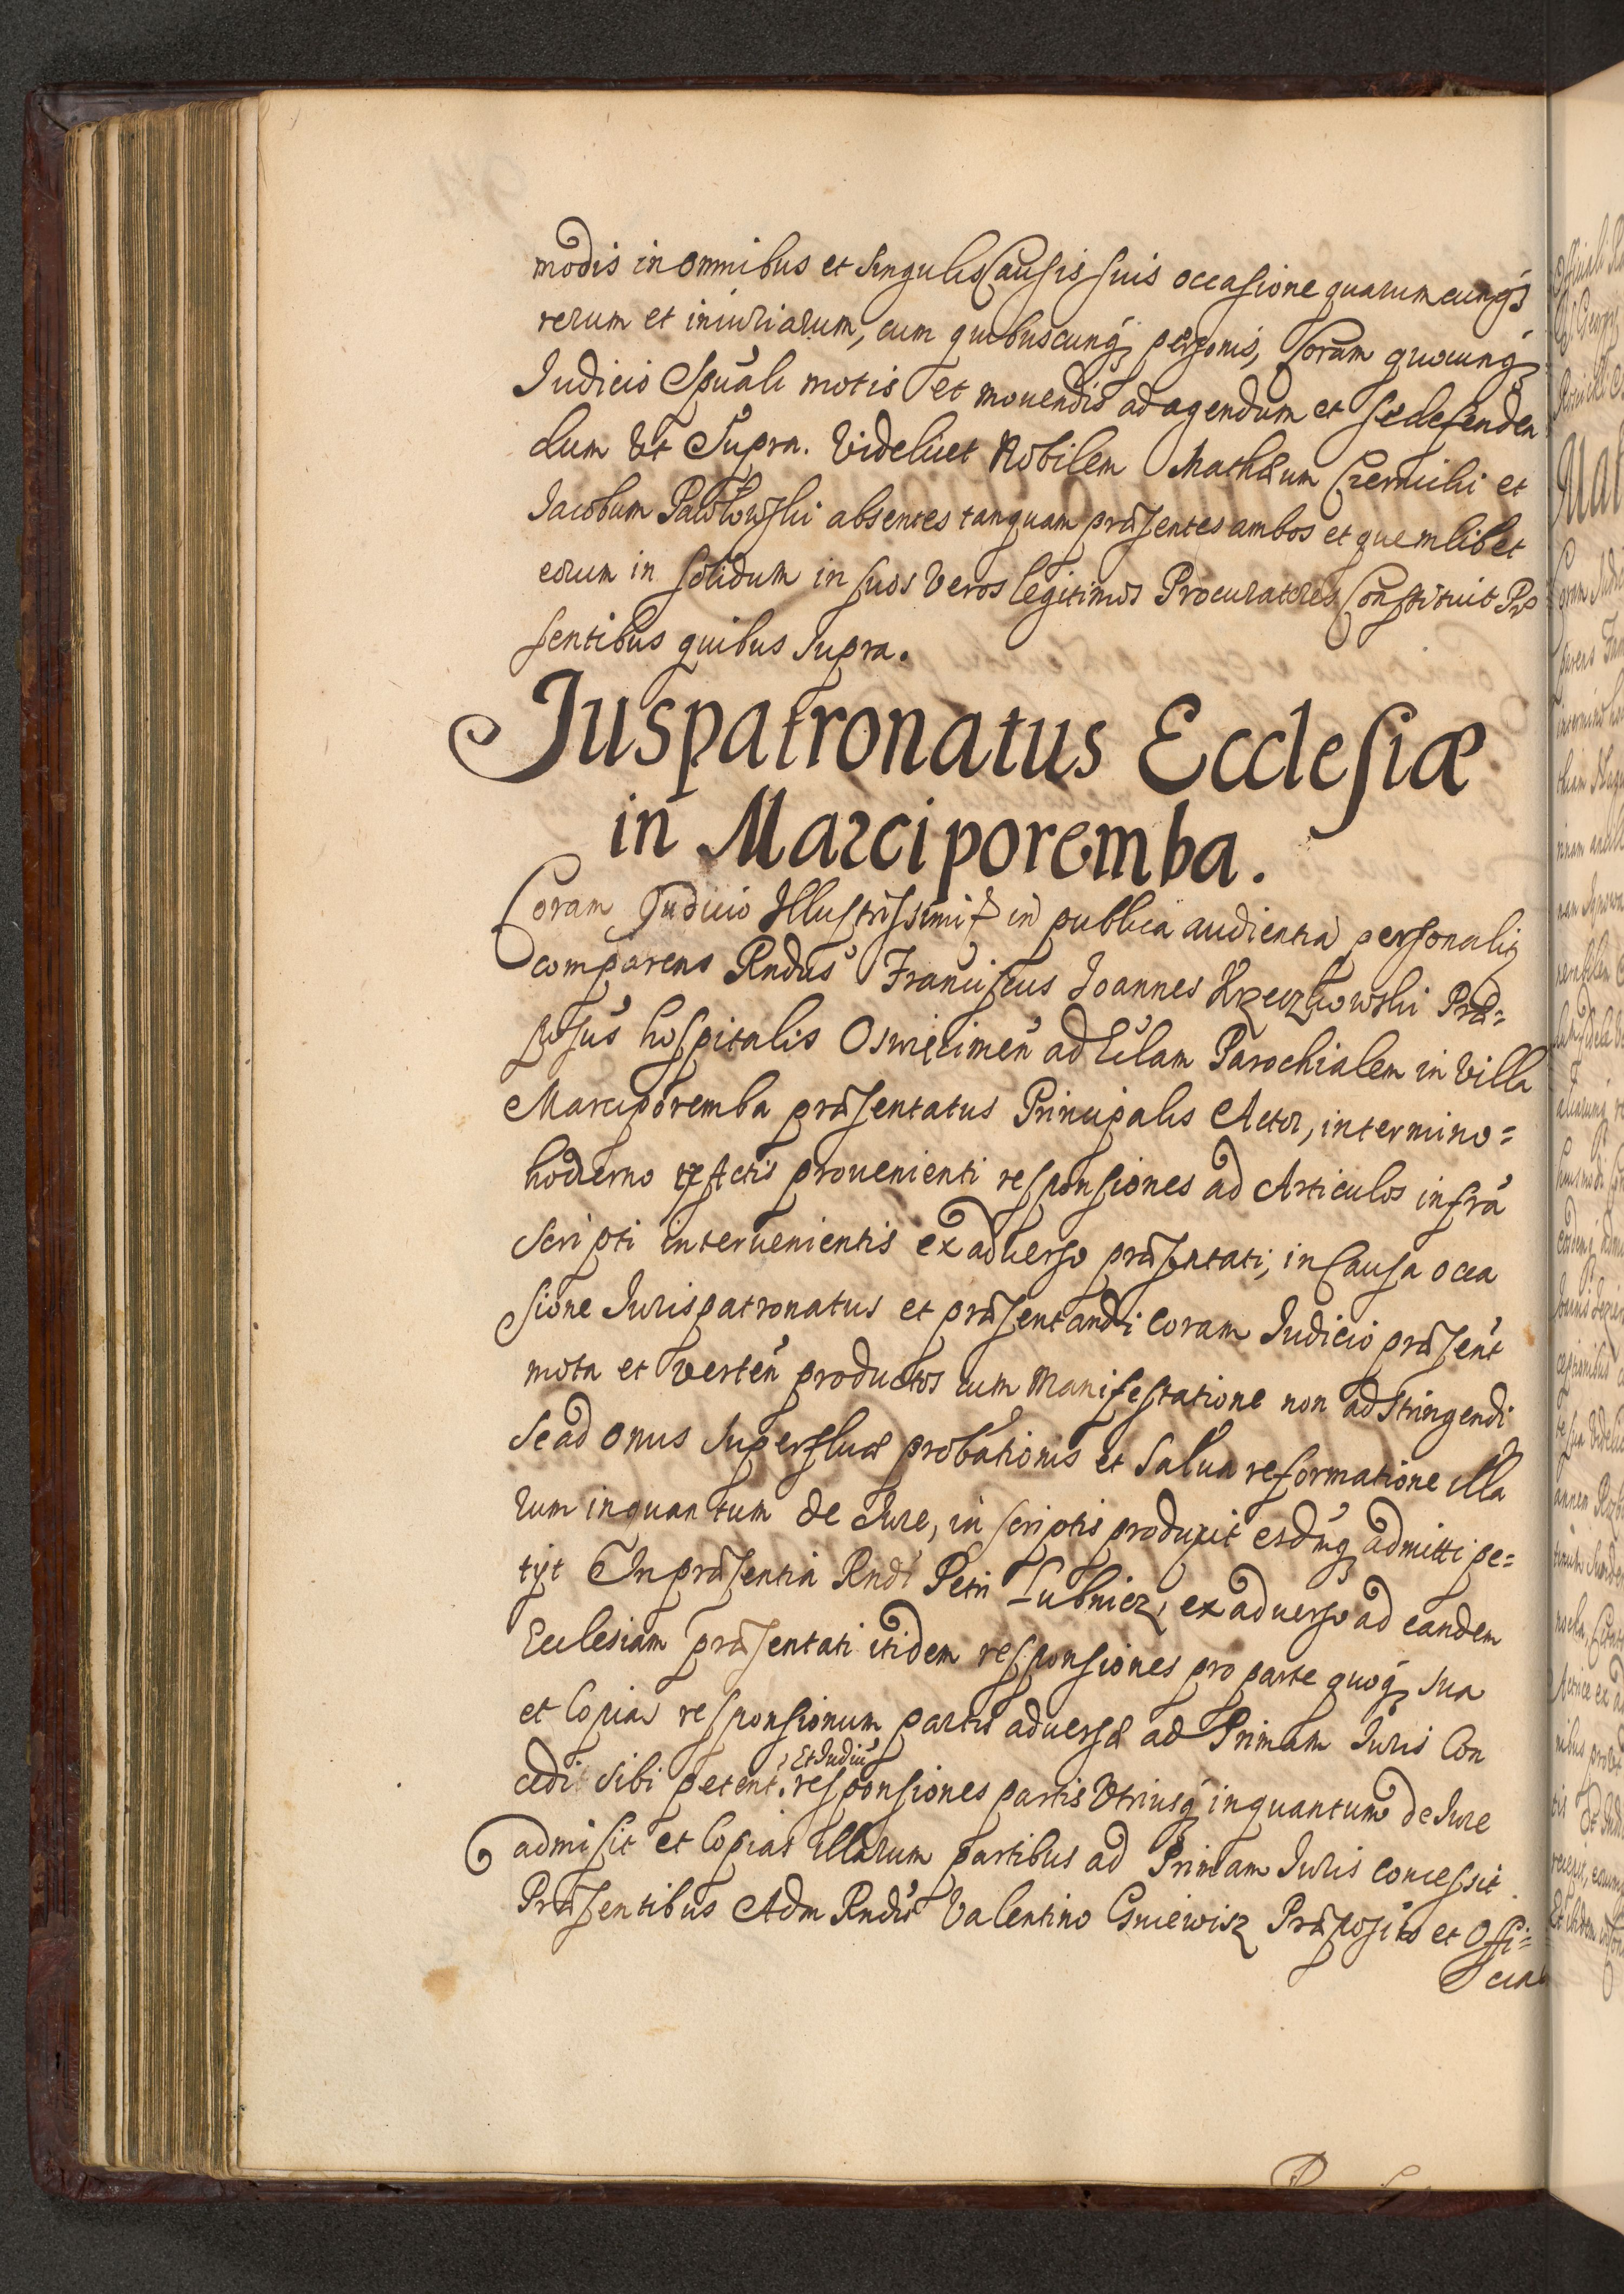 modis in omnibus et singulis Causis suis occasione quarumcunq́ꝫ
rerum et iniuriarum, cum quibuscunq́ꝫ personis, Coram quocunq́ꝫ
Judicio Spũali motis et mouendis ad agendum et se defenden
dum Vt Supra. Videlicet Nobilem Mathæum Czernicki et
Jacobum Pawłowski absentes tanquam præsentes ambos et quemlibet
eorum in solidum in suos Veros legitimos Procuratores Constituit Præ
sentibus quibus supra.
Juspatronatus Ecclesiæ
in Marciporemba.
Coram Judicio Illustrissimi in publica audientia personaliꝫ
comparens Rndus Franciscus Joannes Krzeczkowski Præ=
positus hospitalis Oswięcimeñ ad Eclam Parochialem in Villa
Marciporemba præsentatus Principalis Actor, in termino=
hodierno ex Actis prouenienti responsiones ad Articulos infra
scripti interuenientis ex aduerso præsentati, in Causa occa
sione Jurispatronatus et præsentandi Coram Judicio præsent
mota et verteñ productos cum Manifestatione non adstringendi
se ad onus superfluæ probationis et Salua reformatione illa
rum inquantum de Jure, in scriptis produxit easdmq́ꝫ admitti pe=
tijt In præsentia Rndi Petri Łubnicz, ex aduerso ad eandem
Ecclesiam præsentati itidem responsiones pro parte quoq́ꝫ sua
et Copias responsionum partis aduersæ ad Primam Juris Con
cedi sibi petent. Et Judiciũ responsiones partis Vtriusq́ꝫ inquantum de Jure
admisit et Copias illarum partibus ad Primam Juris concessit
Præsentibus Adm Rndis Valentino Gniewisz Præposito et Offi=
cia